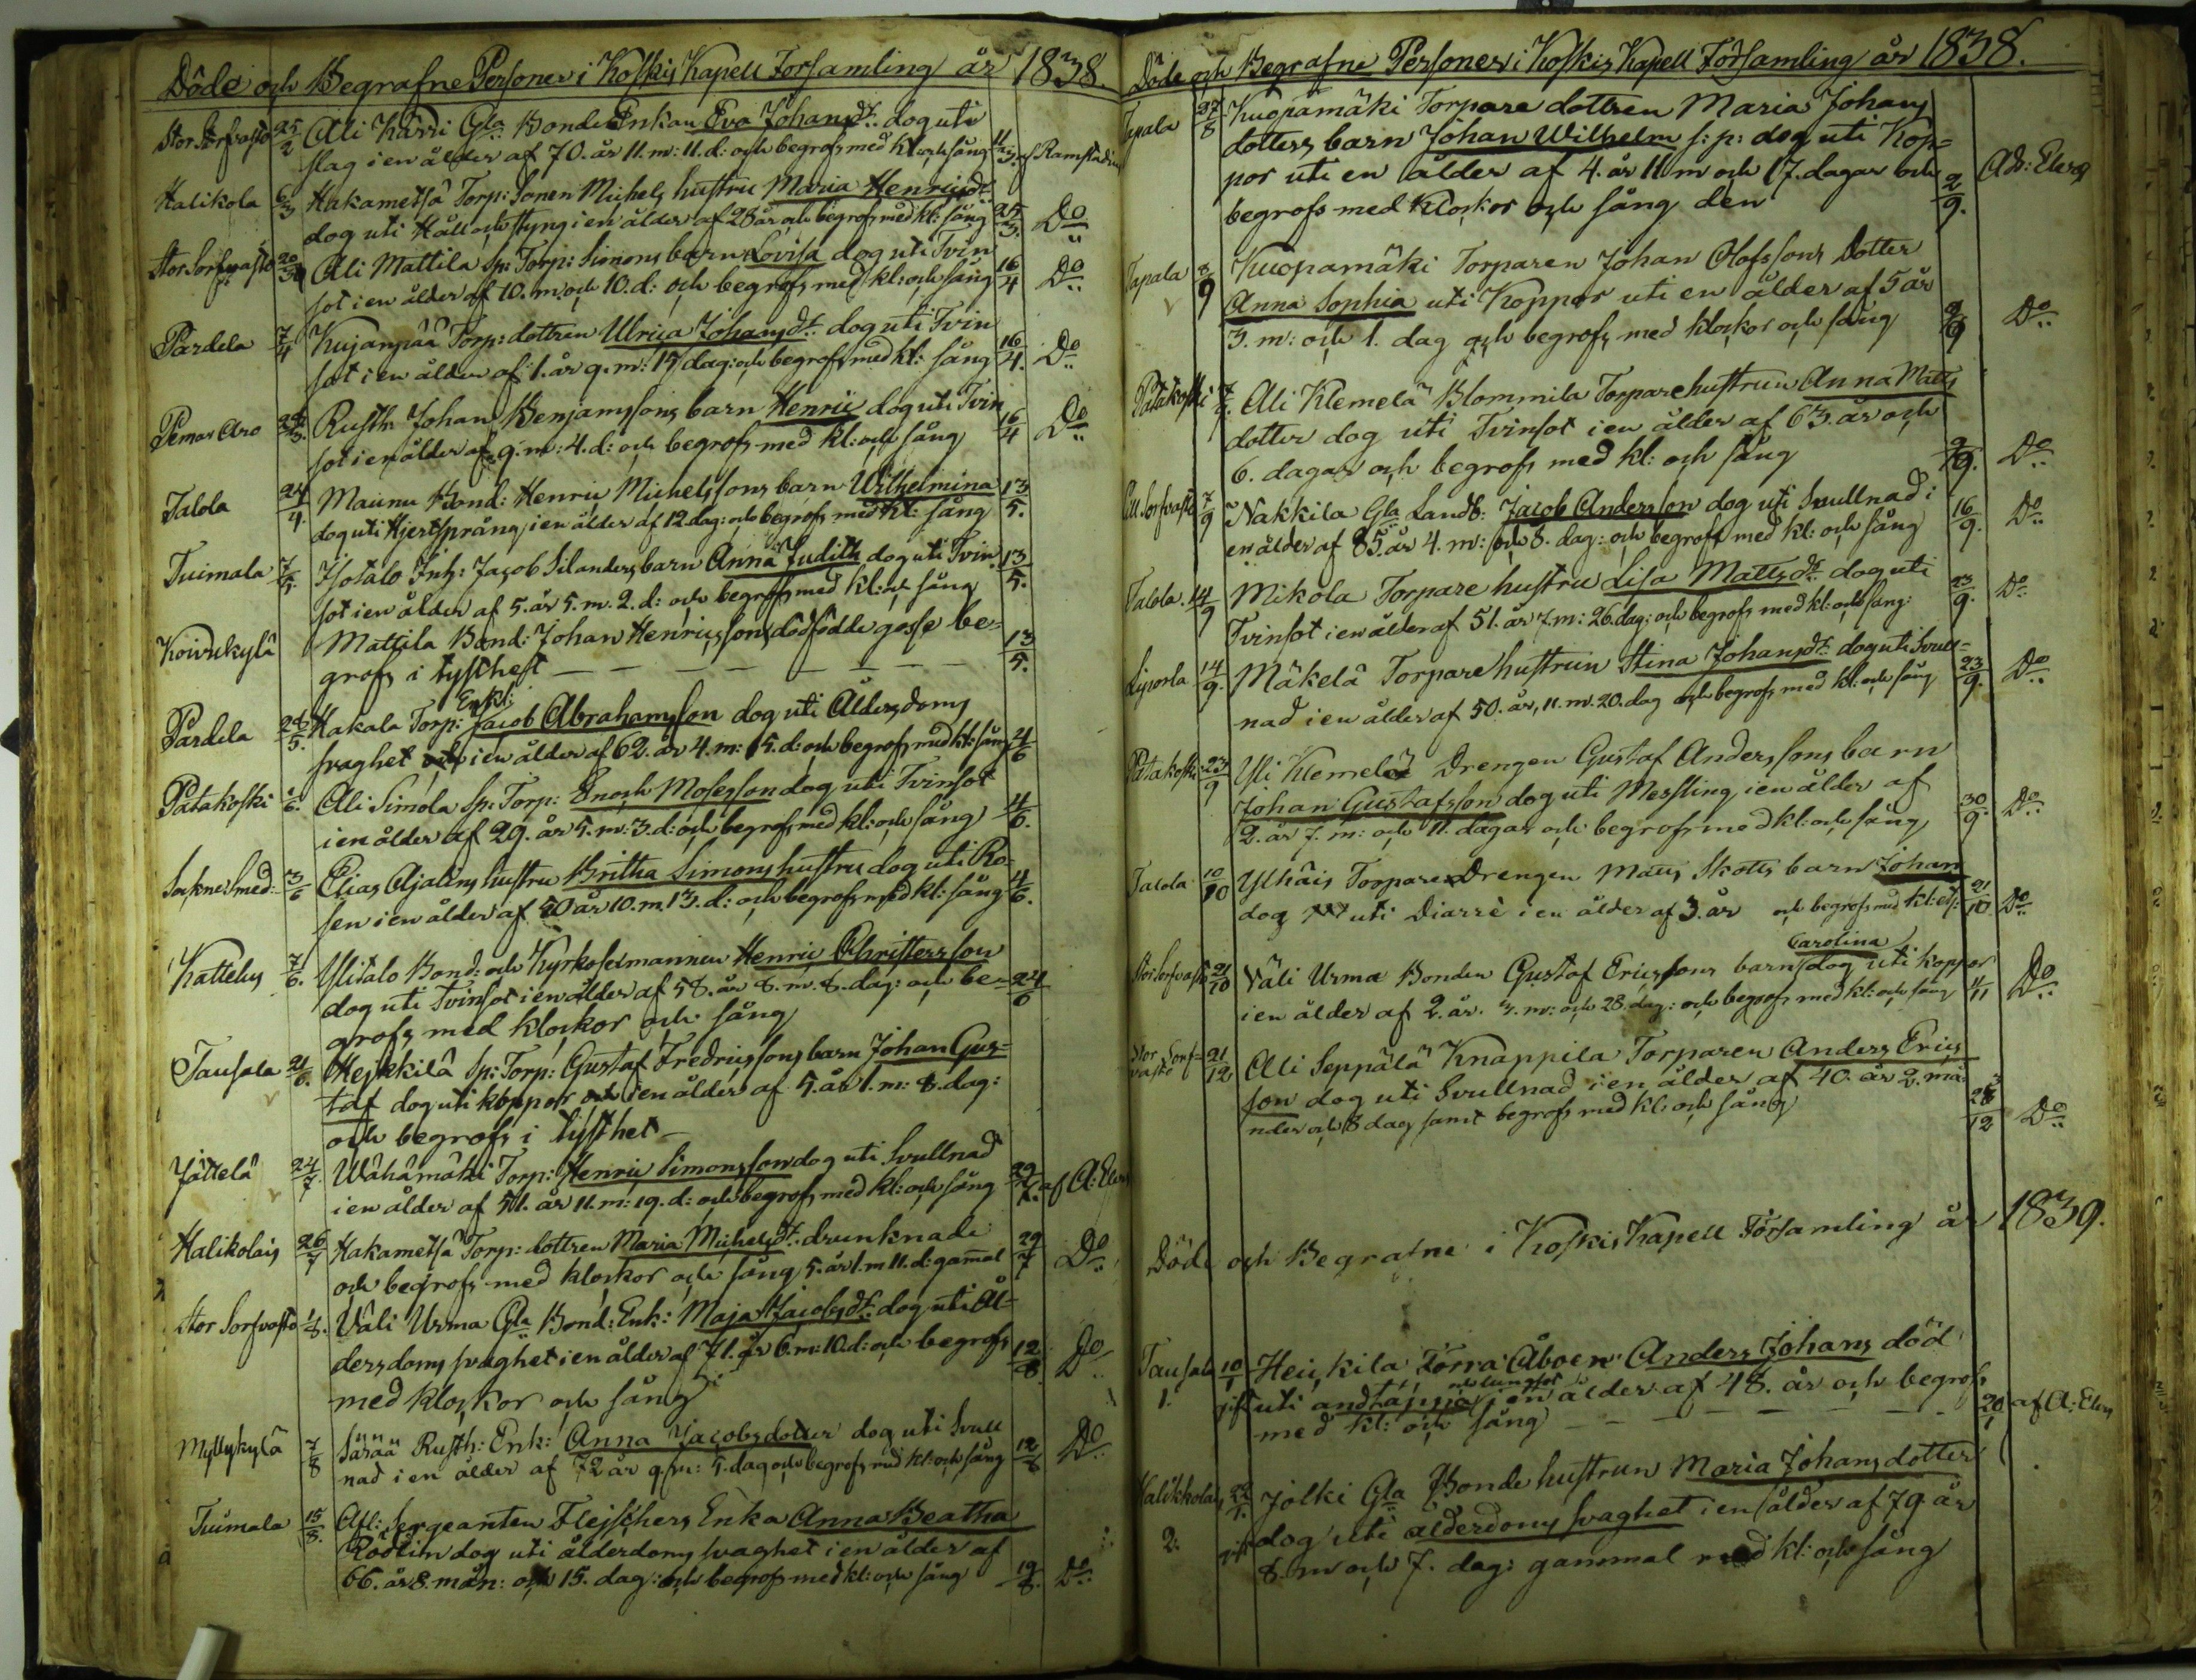 Döde och Begrafne Personer i Koskis Kapell Församling år 1838.
Stor Sorfvasto 25/2 Ali Härri Gla Bonde Enkan Eva Johansdt: dog uti
slag i en ålder af 70. år 11. m: 11. d: och begrofs med kl och sång 11/3 af Ramstadius
Halikola 6/3 Hakametsä Torp: Sonen Michels hustru Maria Henricsdt:
dog uti Håll och styng i en ålder af 28 år och begrofs med kl: sång 25/3. Do
Stor Sorfvasto 20/3 Ali Mattila Sp: Torp: Simons barn Lovisa dog uti Tvin
sot i en ålder af 10. m. och 10. d: och begrofs med kl: och sång 16/4 Do
Pardela 7/4 Kujanpää Torp: dottren Ulrica Johansdt: dog uti Tvin
sot i en ålder af 1. år 9. m: 15 dag: och begrofs med kl: sång 16/4. Do
Pemar Aro Rusth: Johan Benjamssons barn Henric dog uti Tvin
sot i en ålder af 9. m: 4. d: och begrofs med kl: och sång 16/4 Do
Talola 24/4. Maunu Bond: Henric Michelssons barn Wilhelmina
dog uti Hjertsprång i en ålder af 12 dag: och begrofs med kl: sång 13/5.
Tuimala 7/5. Isotalo Inh: Jacob Silanders barn Anna Judith dog uti Tvin
sot i en ålder af 5. år 5. m. 2. d: och begrofs med kl: och sång 13/5.
Koivukylä Mattila Bond: Johan Henricssons dödfödde gosse be-
grofs i tysthet — — — — — — 13/5.
Enkl:
Pardela 28/5. Hakala Torp: Jacob Abrahamsson dog uti Ålderdoms
svaghet i en ålder af 62. år 4. m: 15. d: och begrofs med kl: sång 4/6
Patakoski 1/6. Ali Simola Sp: Torp: Enoch Mosesson dog uti Tvinsot
i en ålder af 29. år 5. m: 3. d: och begrofs med kl: och sång 4/6.
Sockne Smed: 3/6 Elias Ajalins hustru Britha Simons hustru dog uti Ro-
sen i en ålder af 50 år 10. m. 13. d: och begrofs med kl: sång 4/6.
Kattelus 7/6. Ylitalo Bond: och Kyrkosexmannen Henric Christersson
dog uti Tvinsot i en ålder af 58. år 8. m. 8. dag: och be- 24/6
grofs med klockor och sång
Tausala 21/6. Heikkilä Sp: Torp: Gustaf Fredricssons barn Johan Gus-
taf dog uti koppor i en ålder af 5. år 1. m: 8. dag:
och begrofs i tysthet —
Jättelä 24/7. Wähämäki Torp: Henric Simonsson dog uti Svullnad
i en ålder af 51. år 11. m: 19. d: och begrofs med kl: och sång 29/7. af A: Elers
Halikolais 26/7 Hakametsä Torp: dottren Maria Michelsdt: drunknade
och begrofs med klockor och sång 5. år 1. m 11. d: gamal 29/7 Do
Stor Sorfvasto 1/8. Väli Urma Gla Bond: Enk: Maja Jacobsdt: dog uti Ål-
derdoms svaghet i en ålder af 71. år 6. m: 10. d: och begrofs 12/8 Do
med klockor och sång
Myllykylä 7/8 Särää Rusth: Enk: Anna Jacobsdotter dog uti Svull
nad i en ålder af 72 år 9. m: 5. dag och begrofs med kl: och sång 12/8 Do
Tuimala 15/8. Afl: Sergeanten Flejschers Enka Anna Beatha
Rodlin dog uti ålderdoms svaghet i en ålder af
66. år 8. mån: och 15. dag: och begrofs med kl: och sång 19/8. Do
Döde och Begrafne Personer i Koskis Kapell Församling år 1838.
Tapala 27/8 Kuopamäki Torpare dottren Maria Johans
dotters barn Johan Wilhelm s: p: dog uti Kop-
por uti en ålder af 4. år 11 m och 17. dagar och Ad: Elers
begrofs med klockor och sång den 2/9.
Tapala 8/9 Kuopamäki Torparen Johan Olofssons Dotter
Anna Sophia uti Koppor uti en ålder af 5 år
3. m: och 1. dag och begrofs med klockor och sång 9/9 Do
Patakoski 7/9. Ali Klemelä Blommila Torpare hustrun Anna Matts
dotter dog uti Tvinsot i en ålder af 63. år och
6. dagar och begrofs med kl: och sång 9/9. Do
Lill Sorfvasto 7/9 Nakkila Gla Landb: Jacob Andersson dog uti Svullnad i
en ålder af 85. år 4. m: och 8. dag: och begrofs med kl: och sång 16/9. Do
Talola 14/9 Mikola Torpare hustru Lisa Mattsdt: dog uti
Tvinsot i en ålder af 51. år 7. m: 26. dag: och begrofs med kl: och sång: 23/9. Do
Liporla 14/9. Mäkelä Torpare hustrun Stina Johansdt: dog uti Svull-
nad i en ålder af 50. år, 11. m. 20. dag och begrofs med kl: och sång 23/9. Do
Patakoski 23/9 Yli Klemelä Drengen Gustaf Anderssons barn
Johan Gustafsson dog uti Messling i en ålder af
2. år 7. m: och 11. dagar och begrofs med kl: och sång 30/9. Do
Talola 10/10 Ylhäis Torpare Drengen Matts Skotts barn Johan
dog uti Diarrè i en ålder af 3. år och begrofs med kl: et s: 21/10 Do
Carolina
Stor Sorfvasto 21/10 Väli Urma Bonden Gustaf Ericssons barn dog uti koppor
i en ålder af 2. år. 7. m: och 28. dag: och begrofs med kl: och sång 4/11 Do
Stor Sorf-vasto 21/12 Ali Seppälä Knappila Torparen Anders Erics
son dog uti Svullnad i en ålder af 40. år 2. må-
nder och 8 dag samt begrofs med kl: och sång 12 Do
Döde och Begrafne i Koskis Kapell Församling år 1839.
Tausala 10/1 Heickila Torra Åboen Anders Johans död
och lungsot
1. gift uti andtäppa i en ålder af 48. år och begrofs
med kl: och sång — — — — — — 20/1 af A: Elers
Halikkolais 22/1. Jolki Gla Bonde hustrun Maria Johansdotter
2. gift dog uti ålderdoms svaghet i en ålder af 79. år
8. m och 7. dag: gammal med kl: och sång